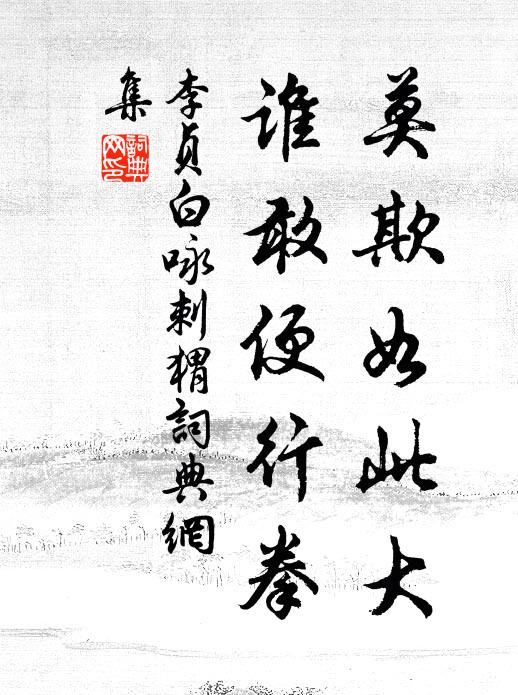 莫欺如此大
谁敢便行拳
李贞白咏刺猬詞典網
集
詞典
网印